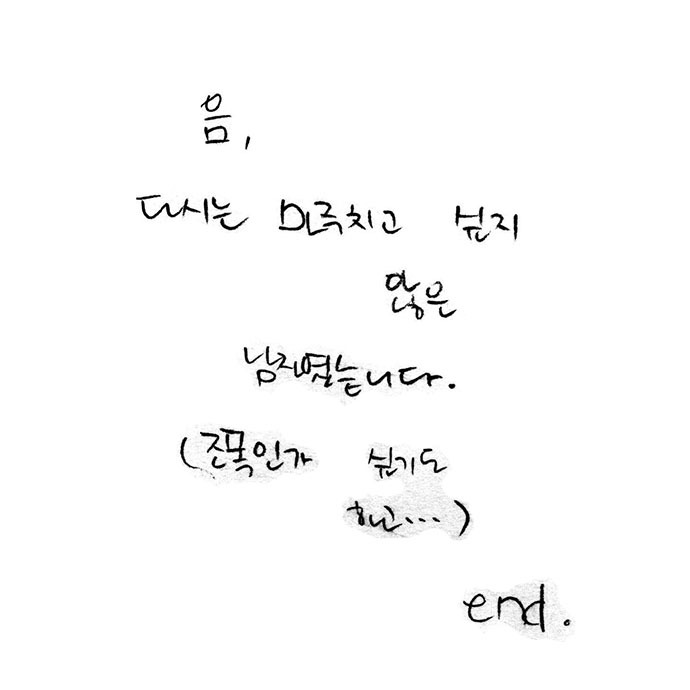 음,
다시는 마주치고 싶지
않은
남자였습니다.
(조폭인가 싶기도
하고...)
end.